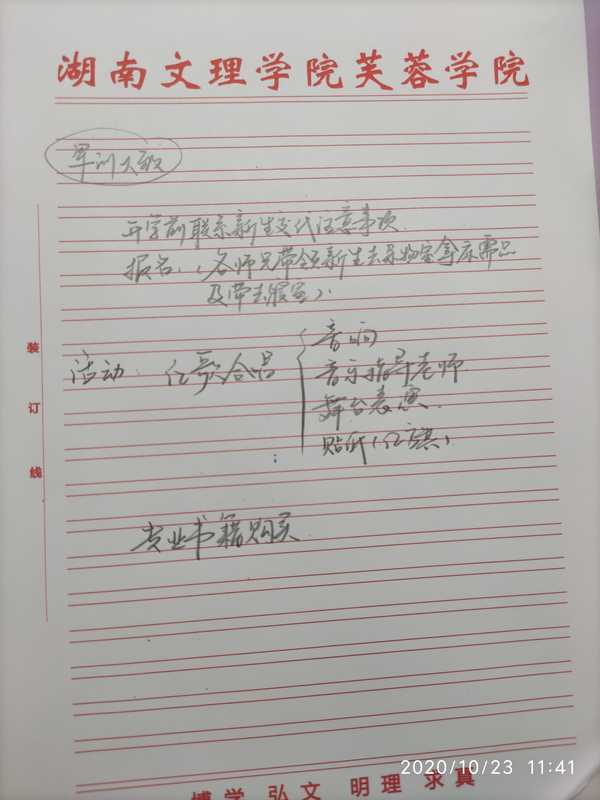 湖南文理学院芙蓉学院
军训大衣
开学前联系新生交代注意事项.
报名.(各师兄带领新生去杂物室拿床需品
及带去寝室).
活动. 红歌合唱
音响
音乐指导老师
舞台表演.
贴纸(红旗)
专业书籍购买.
装
订
线
2020/10/23 11:41
博学 弘文 明理 求真